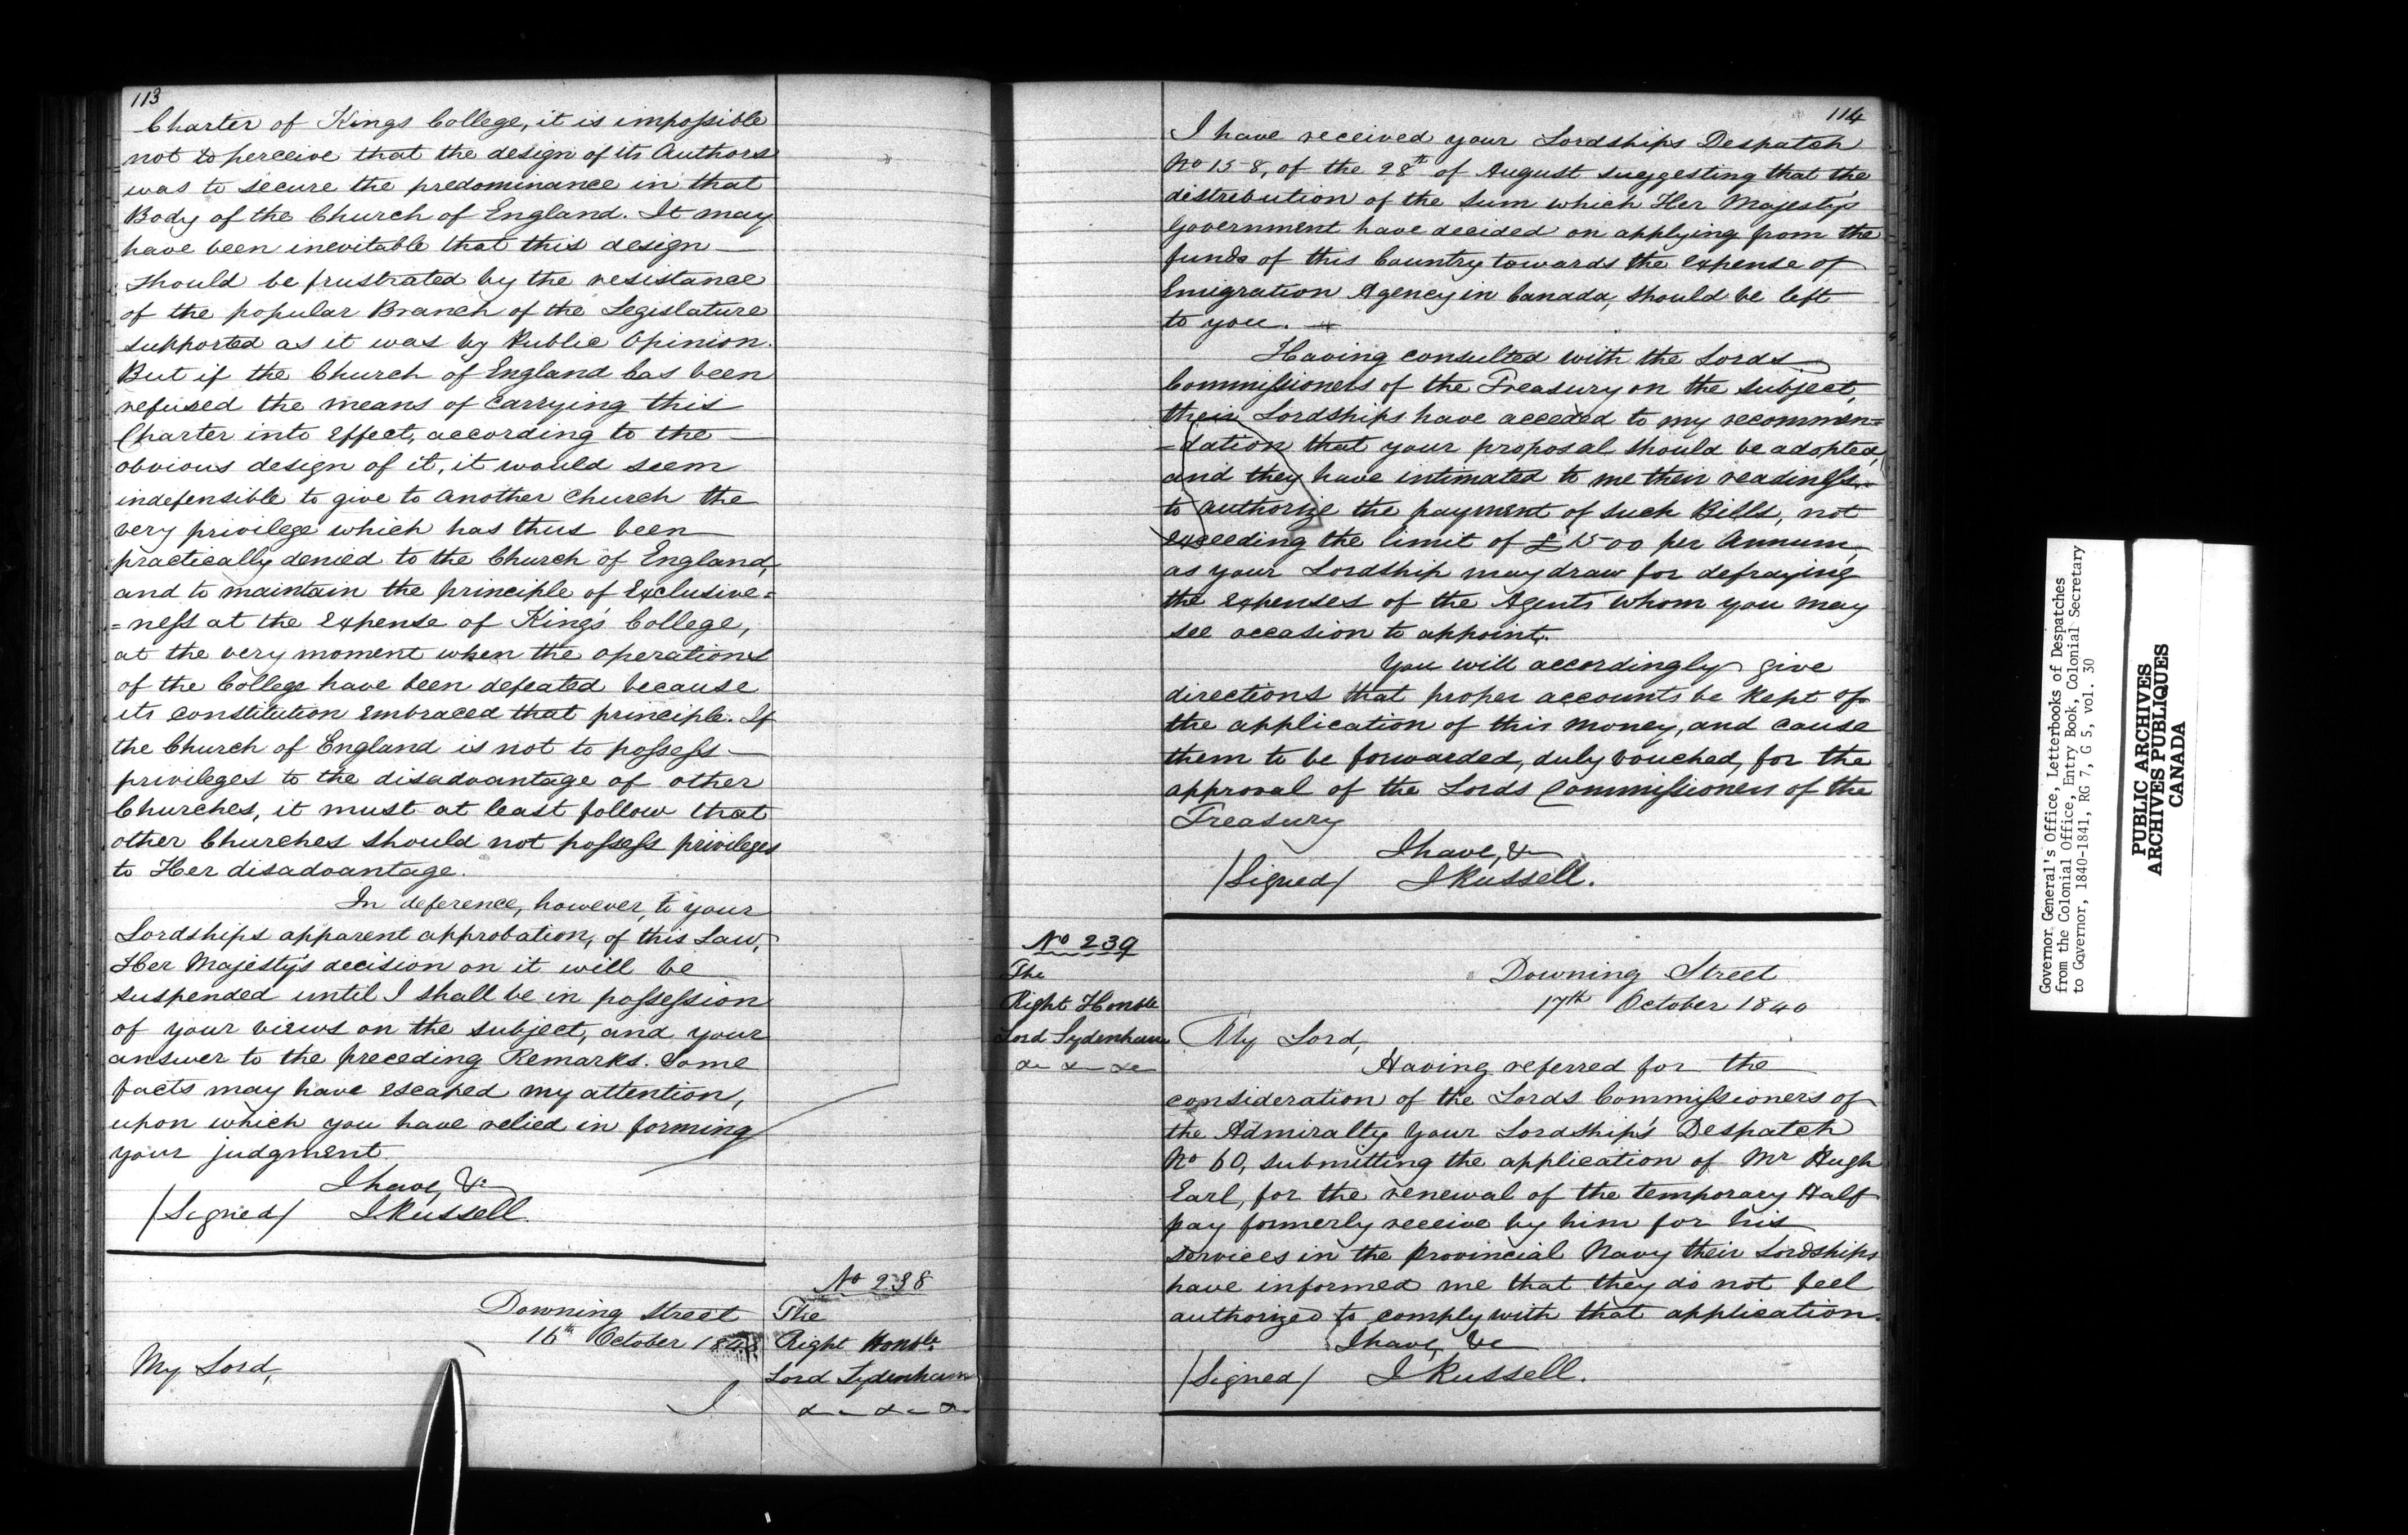 113
Charter of Kings College, it is impossible
not to perceive that the design of its Authors
was to secure the predominance in that
Body of the Church of England. It may
have been inevitable that this design
should be frustrated by the resistance
of the popular Branch of the Legislature
supported as it was by Public Opinion.
But if the Church of England has been
refused the means of carrying this
Charter into effect, according to the
obvious design of it, it would seem
indefensible to give to another Church the
very privilege which has thus been
practically denied to the Church of England,
and to maintain the principle of Exclusive=
=ness at the expense of King's College,
at the very moment when the operations
of the College have been defeated because
its constitution embraced that principle. If
the Church of England is not to possess
privileges to the disadvantage of other
Churches, it must at least follow that
other Churches should not possess privileges
to Her disadvantage.
In deference, however, to your
Lordships apparent approbation, of this Law,
Her Majesty's decision on it will be
suspended until I shall be in possession
of your views on the subject, and your
answer to the preceding Remarks. Some
facts may have escaped my attention,
upon which you have relied in forming
your judgment
I have, &c
/Signed/ J Russell.
No 238
The
Right Honble
Lord Sydenham
&c &c &c
Downing Street
16th October 1840
My Lord,
I
114
I have received your Lordships Despatch
No 158, of the 28th of August suggesting that the
distribution of the sum which Her Majesty's
Government have decided on applying from the
funds of this Country towards the expense of
Emigration Agency in Canada, should be left
to you.
Having consulted with the Lords
Commissioners of the Treasury on the subject,
their Lordships have acceded to my recommen=
=dation that your proposal should be adopted,
and they have intimated to me their readiness
to authorize the payment of such Bills, not
exceeding the limit of £1500 per Annum,
as your Lordship may draw for defraying
the expenses of the Agents whom you may
see occasion to appoint.
You will accordingly give
directions that proper accounts be kept of
the application of this money, and cause
them to be forwarded, duly vouched, for the
approval of the Lords Commissioners of the
Treasury
I have, &c
/Signed/ J Russell.
No 239
The
Right Honble
Lord Sydenham
&c &c &c
Downing Street
17th October 1840
My Lord,
Having referred for the
consideration of the Lords Commissioners of
the Admiralty Your Lordship's Despatch
No 60, submitting the application of Mr Hugh
Earl, for the renewal of the temporary Half
pay formerly receive by him for his
services in the Provincial Navy their Lordships
have informed me that they do not feel
authorized to comply with that application.
I have, &c
/Signed/ J Russell.
Governor General's Office, Letterbooks of Despatches
from the Colonial Office, Entry Book, Colonial Secretary
to Governor, 1840-1841, RG 7, G 5, vol. 30
PUBLIC ARCHIVES
ARCHIVES PUBLIQUES
CANADA